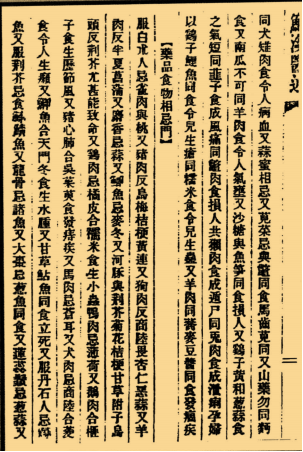 同犬雉肉食令人病血又蒜蜜相忌又莧菜忌與鱉同食馬齒莧同又山藥勿同麪
食又南瓜不可同羊肉食令人氣壅又沙糖與魚笋同食損人又鷄子黃和葱蒜食
之氣短同韭子食成風痛同鱉肉食損人共獺肉食成遁尸同兎肉食成泄痢孕婦
以鷄子鯉魚同食令兒生瘡同糯米食令兒生蟲又羊肉同蕎麥豆醬同食發痼疾
【藥品食物相忌門】
服白朮人忌雀肉與桃又猪肉反烏梅桔梗黃連又狗肉反商陸畏杏仁惡蒜又羊
肉反半夏菖蒲又麝香忌蒜又鯽魚忌麥冬又河豚與荆芥菊花桔梗甘草附子烏
頭反荆芥尤甚能致命又鷄肉忌橘皮合糯米食生小蟲鴨肉忌薄荷又鵝肉合
子食生歷節風又猪心肺合吳茱萸食發痔疾又馬肉忌蒼耳又犬肉忌商陸合菱
食令人生癲又鯽魚合天門冬食生水腫又甘草鮎魚同食立死又服丹石人忌
魚又服荆芥忌食鱗魚又龍骨忌諸魚又大棗忌葱魚同食又蓮蕊鬚忌葱蒜又